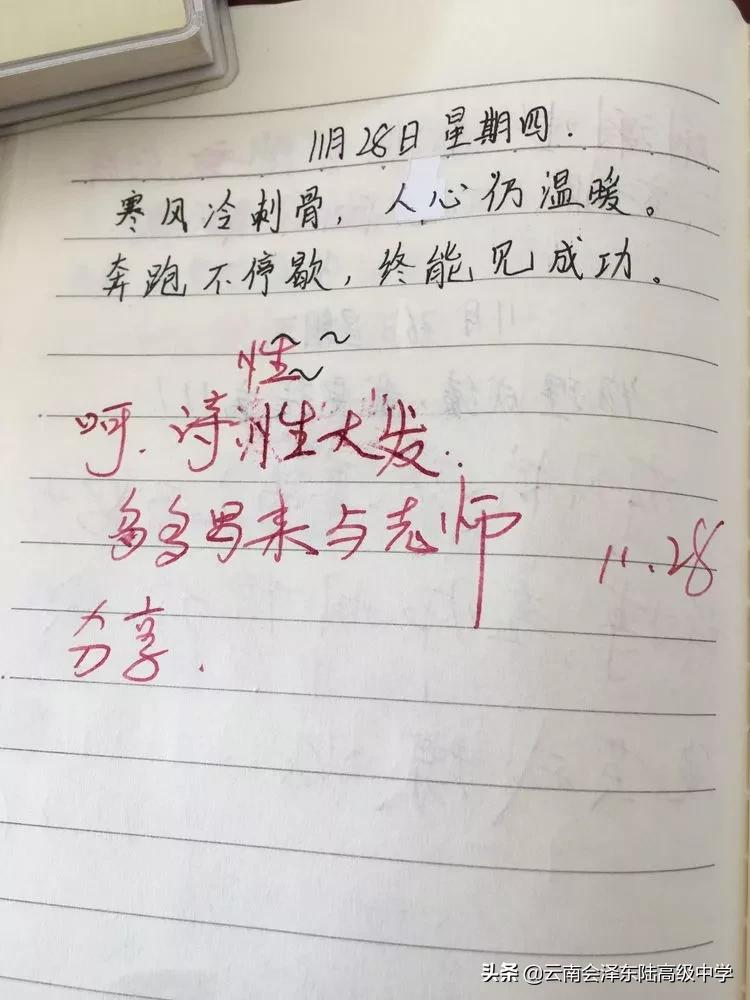 11月28日星期四.
寒风冷刺骨，人心仍温暖。
奔跑不停歇，终能见成功。
性
呵.诗"性"大发.
多多写来与老师
11.28
分享.
头条@云南会泽东陆高级中学